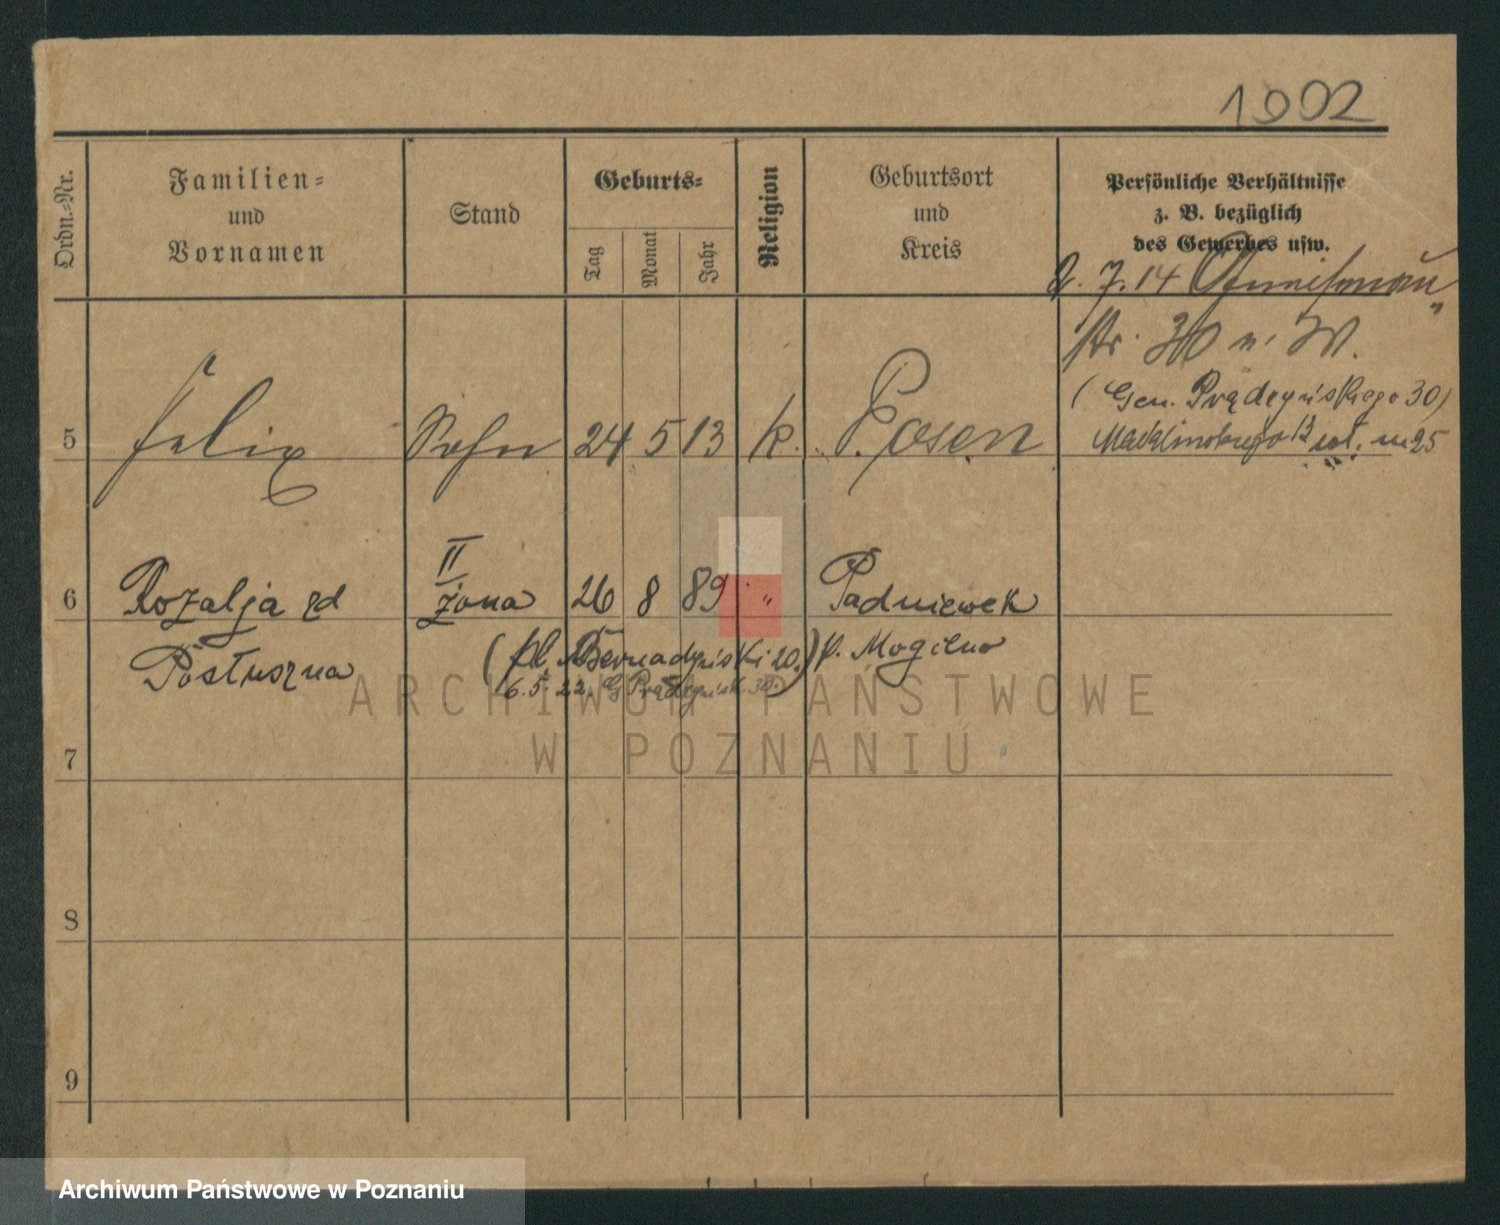 1902
Ordn.-Nr.
Familien-
und
Vornamen
Stand
Geburts-
Tag
Monat
Jahr
Religion
Geburtsort
und
Kreis
Persönliche Verhältnisse
z. B. bezüglich
des Gewerbes usw.
2. 7. 14
str. 30 n. W.
(Gen. Prądzyńskiego 30)
5 Felix Sohn 24 5 13 k. Posen
m 25
6 Rozalja zd II żona 26 8 89 " Padniewek
Posłuszna (pl. Bernadyński 20.) p. Mogilno
6. 5. 22. G Prądzyńsk. 30.
7
8
9
ARCHIWUM PAŃSTWOWE
W POZNANIU
Archiwum Państwowe w Poznaniu